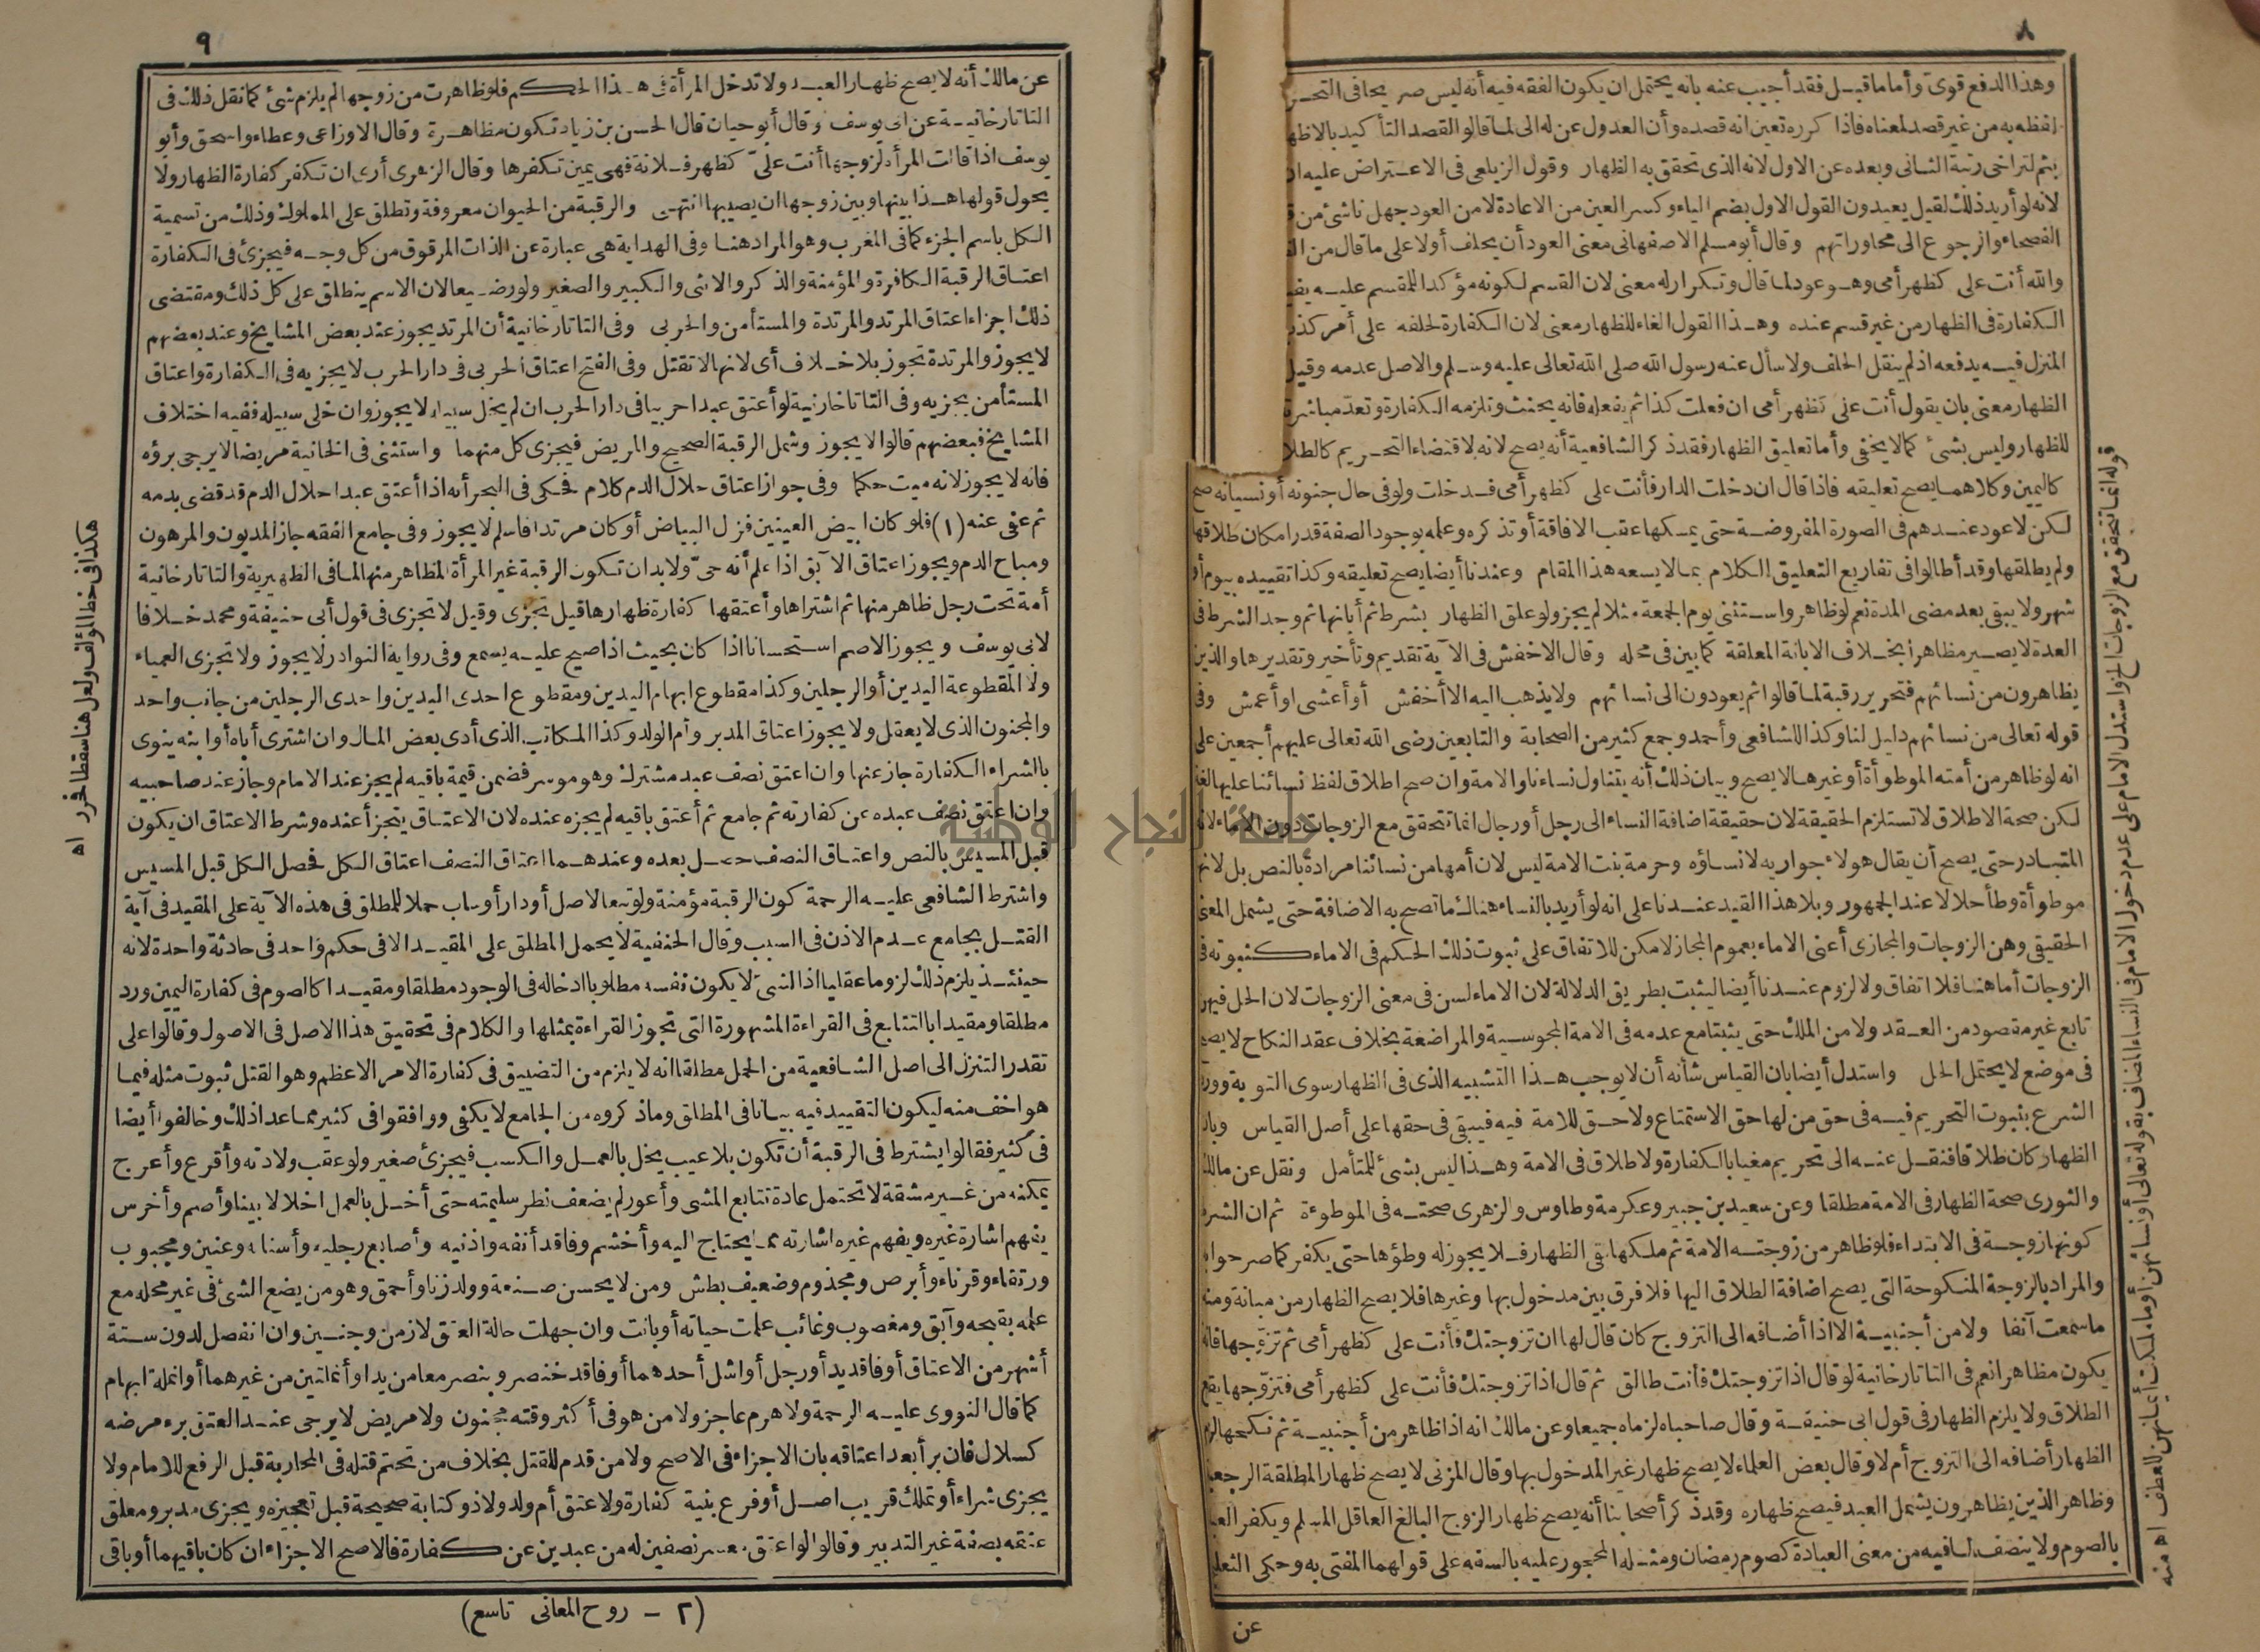 ٨
وهذا الدفع قوى وأما ما قيل فقد أجيب عنه بانه يحتمل ان يكون الفقه فيه أنه ليس صريحا فى التحر
لفظه به من غير قصد لمعناه فاذا كرره تعين انه قصده وأن العدول عن له الى لما قالوا لقصد التأكيد بالاظه
بثم لتراخى رتبة الثانى وبعده عن الاول لانه الذى تحقق به الظهار وقول الزيلعى فى الاعتراض عليه ان
لانه لو أريد ذلك لقيل يعيدون القول الاول بضم الياء وكسر العين من الاعادة لا من العود جهل ناشئ من
الفصحاء والرجوع الى محاوراتهم وقال أبو مسلم الاصفهانى معنى العود أن يحلف أولا على ما قال من
والله أنت على كظهر أمى وهو عود لما قال وتكرار له معنى لان القسم لكونه مؤكدا للمقسم عليه يفي
الكفارة فى الظهار من غير قسم عنده وهذا القول الغاء للظهار معنى لان الكفارة لحلفه على أمر كذ
المنزل فيه يدفعه اذ لم ينقل الحلف ولا سأل عنه رسول الله صلى الله تعالى عليه وسلم والاصل عدمه وقيل
الظهار معنى بان يقول أنت على كظهر أمى ان فعلت كذا ثم يفعله فانه يحنث وتلزمه الكفارة وتعد مباشرة
للظهار وليس بشئ كما لا يخفى وأما تعليق الظهار فقد ذكر الشافعية أنه يصح لانه لاقتضاء التحريم كالطلا
كاليمين وكلاهما يصح تعليقه فاذا قال ان دخلت الدار فأنت على كظهر أمى فدخلت ولو فى حال جنونه أو نسيانه صح
لكن لا عود عندهم فى الصورة المفروضة حتى يمسكها عقب الافاقة أو تذكره وعلمه بوجود الصفة قدر امكان طلاقها
ولم يطلقها وقد أطالوا فى تفاريع التعليق الكلام بما لا يسعه هذا المقام وعندنا أيضا يصح تعليقه وكذا تقييده بيوم أو
شهر ولا يبقى بعد مضى المدة نعم لو ظاهر واستثنى يوم الجمعة مثلا لم يجز ولو علق الظهار بشرط ثم أبانها ثم وجد الشرط فى
العدة لا يصير مظاهرا بخلاف الابانة المعلقة كما بين فى محله وقال الاخفش فى الآية تقديم وتأخير وتقديرها والذين
يظاهرون من نسائهم فتحرير رقبة لما قالوا ثم يعودون الى نسائهم ولا يذهب اليه الا أخفش أو أعشى او أعمش وفى
قوله تعالى من نسائهم دليل لنا وكذا للشافعى وأحمد وجمع كثير من الصحابة والتابعين رضى الله تعالى عليهم أجمعين على
انه لو ظاهر من أمته الموطوأة أو غيرها لا يصح وبيان ذلك أنه يتناول نساءنا والامة وان صح اطلاق لفظ نسائنا عليها لغة
لكن صحة الاطلاق لا تستلزم الحقيقة لان حقيقة اضافة النساء الى رجل أو رجال انما تتحقق مع الزوجات دون الاماء لانه
المتبادر حتى يصح أن يقال هولاء جواريه لا نساؤه وحرمة بنت الامة ليس لان أمها من نسائنا مرادة بالنص بل لانها
موطوأة وطأ حلالا عند الجمهور وبلا هذا القيد عندنا على انه لو أريد بالنساء هنالك ما تصح به الاضافة حتى يشمل المعنى
الحقيقى وهن الزوجات والمجازى أعنى الاماء بعموم المجاز لامكن للاتفاق على ثبوت ذلك الحكم فى الاماء كثبوته فى
الزوجات أما هنا فلا اتفاق ولا لزوم عندنا أيضا ليثبت بطريق الدلالة لان الاماء لسن فى معنى الزوجات لان الحل فيهن
تابع غير مقصود من العقد ولا من الملك حتى يثبتا مع عدمه فى الامة المجوسية والمراضعة بخلاف عقد النكاح لا يصح
فى موضع لا يحتمل الحل واستدل أيضا بان القياس شأنه أن لا يوجب هذا التشبيه الذى فى الظهار سوى التوبة وورد
الشرع بثبوت التحريم فيه فى حق من لها حق الاستمتاع ولا حق للامة فيه فيبقى فى حقها على أصل القياس وبان
الظهار كان طلاقا فنقل عنه الى تحريم مغيا بالكفارة ولا طلاق فى الامة وهذا ليس بشئ للمتأمل ونقل عن مالك
والثورى صحة الظهار فى الامة مطلقا وعن سعيد بن جبير وعكرمة وطاوس والزهرى صحته فى الموطوءة ثم ان الشرط
كونها زوجة فى الابتداء فلو ظاهر من زوجته الامة ثم ملكها بقى الظهار فلا يجوز له وطؤها حتى يكفر كما صرحوا به
والمراد بالزوجة المنكوحة التى يصح اضافة الطلاق اليها فلا فرق بين مدخول بها وغيرها فلا يصح الظهار من مبانة ومنه
ما سمعت آنفا ولا من أجنبية الا اذا أضافه الى التزوج كان قال لها ان تزوجتك فأنت على كظهر أمى ثم تزوجها فانه
يكون مظاهرا نعم فى التاتارخانية لو قال اذا تزوجتك فأنت طالق ثم قال اذا تزوجتك فأنت على كظهر أمى فتزوجها يقع
الطلاق ولا يلزم الظهار فى قول ابى حنيفة وقال صاحباه لزماه جميعا وعن مالك انه اذا ظاهر من أجنبية ثم نكحها لزم
الظهار أضافه الى التزوج أم لا وقال بعض العلماء لا يصح ظهار غير المدخول بها وقال المزنى لا يصح ظهار المطلقة الرجعية
وظاهر الذين يظاهرون يشمل العبد فيصح ظهاره وقد ذكر أصحابنا أنه يصح ظهار الزوج البالغ العاقل المسلم ويكفر العبد
بالصوم ولا ينصف لما فيه من معنى العبادة كصوم رمضان ومثله المحجور عليه بالسفه على قولهما المفتى به وحكى الثعلبى
عن
قوله انما تتحقق مع الزوجات الخ واستدل الامام على عدم دخول الاماء فى النساء المضاف بقوله تعالى أو نسائهن أو ما ملكت أيمانهن للعطف اه منه
٩
عن مالك أنه لا يصح ظهار العبد ولا تدخل المرأة فى هذا الحكم فلو ظاهرت من زوجها لم يلزم شئ كما نقل ذلك فى
التاتارخانية عن ابى يوسف وقال أبو حيان قال الحسن بن زياد تكون مظاهرة وقال الاوزاعى وعطاء واسحق وأبو
يوسف اذا قالت المرأة لزوجها أنت علىّ كظهر فلانة فهى يمين تكفرها وقال الزهرى أرى ان تكفر كفارة الظهار ولا
يحول قولها هذا بينها وبين زوجها ان يصيبها انتهى والرقبة من الحيوان معروفة وتطلق على المملوك وذلك من تسمية
الكل باسم الجزء كما فى المغرب وهو المراد هنا وفى الهداية هى عبارة عن الذات المرقوق من كل وجه فيجزئ فى الكفارة
اعتاق الرقبة الكافرة والمؤمنة والذكر والانثى والكبير والصغير ولو رضيعا لان الاسم ينطلق على كل ذلك ومقتضى
ذلك اجزاء اعتاق المرتد والمرتدة والمستأمن والحربى وفى التاتارخانية أن المرتد يجوز عند بعض المشايخ وعند بعضهم
لا يجوز والمرتدة تجوز بلا خلاف أى لانها لا تقتل وفى الفتح اعتاق الحربى فى دار الحرب لا يجزيه فى الكفارة واعتاق
المستأمن يجزيه وفى التاتاخارنية لو أعتق عبدا حربيا فى دار الحرب ان لم يخل سبيله لا يجوز وان خلى سبيله ففيه اختلاف
المشايخ فبعضهم قالوا لا يجوز وشمل الرقبة الصحيح والمريض فيجزى كل منهما واستثنى فى الخانية مريضا لا يرجى برؤه
فانه لا يجوز لانه ميت حكما وفى جواز اعتاق حلال الدم كلام فحكى فى البحر أنه اذا أعتق عبدا حلال الدم قد قضى بدمه
ثم عفى عنه (١) فلو كان ابيض العينين فزل البياض أو كان مرتدا فاسلم لا يجوز وفى جامع الفقه جاز المديون والمرهون
ومباح الدم ويجوز اعتاق الآبق اذا علم أنه حىّ ولا بد ان تكون الرقبة غير المرأة المظاهر منها لما فى الظهيرية والتاتارخانية
أمة تحت رجل ظاهر منها ثم اشتراها وأعتقها كفارة ظهارها قيل تجزى وقيل لا تجزى فى قول أبى حنيفة ومحمد خلافا
لابى يوسف ويجوز الاصم استحسانا اذا كان بحيث اذا صيح عليه يسمع وفى رواية النوادر لا يجوز ولا تجزى العمياء
ولا المقطوعة اليدين أو الرجلين وكذا مقطوع ابهام اليدين ومقطوع احدى اليدين واحدى الرجلين من جانب واحد
والمجنون الذى لا يعقل ولا يجوز اعتاق المدبر وأم الولد وكذا المكاتب الذى أدى بعض المال وان اشترى أباه أو ابنه ينوى
بالشراء الكفارة جاز عنها وان اعتق نصف عبد مشترك وهو موسر فضمن قيمة باقيه لم يجز عند الامام وجاز عند صاحبيه
وان اعتق نصف عبده عن كفارته ثم جامع ثم أعتق باقيه لم يجزه عنده لان الاعتاق يتجزأ عنده وشرط الاعتاق ان يكون
قبل المسيس بالنص واعتاق النصف حصل بعده وعندهما اعتاق النصف اعتاق الكل فحصل الكل قبل المسيس
واشترط الشافعى عليه الرحمة كون الرقبة مؤمنة ولو تبعا لاصل أو دار أو ساب حملا للمطلق فى هذه الآية على المقيد فى آية
القتل بجامع عدم الاذن فى السبب وقال الحنفية لا يحمل المطلق على المقيد الا فى حكم واحد فى حادثة واحدة لانه
حينئذ يلزم ذلك لزوما عقليا اذ الشئ لا يكون نفسه مطلوبا ادخاله فى الوجود مطلقا ومقيدا كالصوم فى كفارة اليمين ورد
مطلقا ومقيدا بالتتابع فى القراءة المشهورة التى تجوز القراءة بمثلها والكلام فى تحقيق هذا الاصل فى الاصول وقالوا على
تقدر التنزل الى اصل الشافعية من الحمل مطلقا انه لا يلزم من التضييق فى كفارة الامر الاعظم وهو القتل ثبوت مثله فيما
هو أخف منه ليكون التقييد فيه بيانا فى المطلق وما ذكروه من الجامع لا يكفى ووافقوا فى كثير مما عدا ذلك وخالفوا أيضا
فى كثير فقالوا يشترط فى الرقبة أن تكون بلا عيب يخل بالعمل والكسب فيجزئ صغير ولو عقب ولادته وأقرع وأعرج
يمكنه من غير مشقة لا تحتمل عادة تتابع المشى وأعور لم يضعف نظر سليمته حتى أخل بالعمل اخلالا بينا وأصم وأخرس
يفهم اشارة غيره ويفهم غيره اشارته مما يحتاج اليه وأخشم وفاقد أنفه واذنيه وأصابع رجليه وأسنانه وعنين ومجبوب
ورتقاء وقرناء وأبرص ومجذوم وضعيف بطش ومن لا يحسن صنعة وولد زنا وأحمق وهو من يضع الشئ فى غير محله مع
علمه بقبحه وآبق ومغصوب وغائب علمت حياته أو بانت وان جهلت حالة العتق لا زمن وجنين وان انفصل لدون ستة
أشهر من الاعتاق أو فاقد يد أو رجل أو اشل أحدهما أو فاقد خنصر وبنصر معا من يد او أنملتين من غيرهما أو انملة ابهام
كما قال النووى عليه الرحمة ولا هرم عاجز ولا من هو فى أكثر وقته مجنون ولا مريض لا يرجى عند العتق برء مرضه
كسلال فان برأ بعد اعتاقه بان الاجزاء فى الاصح ولا من قدم للقتل بخلاف من تحتم قتله فى المحاربة قبل الرفع للامام ولا
يجزى شراء أو تملك قريب اصل أو فرع بنية كفارة ولا عتق أم ولد ولا ذو كتابة صحيحة قبل تعجيزه ويجزى مدبر ومعلق
عتقه بصفة غير التدبير وقالوا لو اعتق معسر نصفين له من عبدين عن كفارة فالاصح الاجزاء ان كان باقيهما أو باقى
(٢ – روح المعانى تاسع)
هكذا فى خط المؤلف ولعل هنا سقطا فحرر اه
جامعة النجاح الوطنية